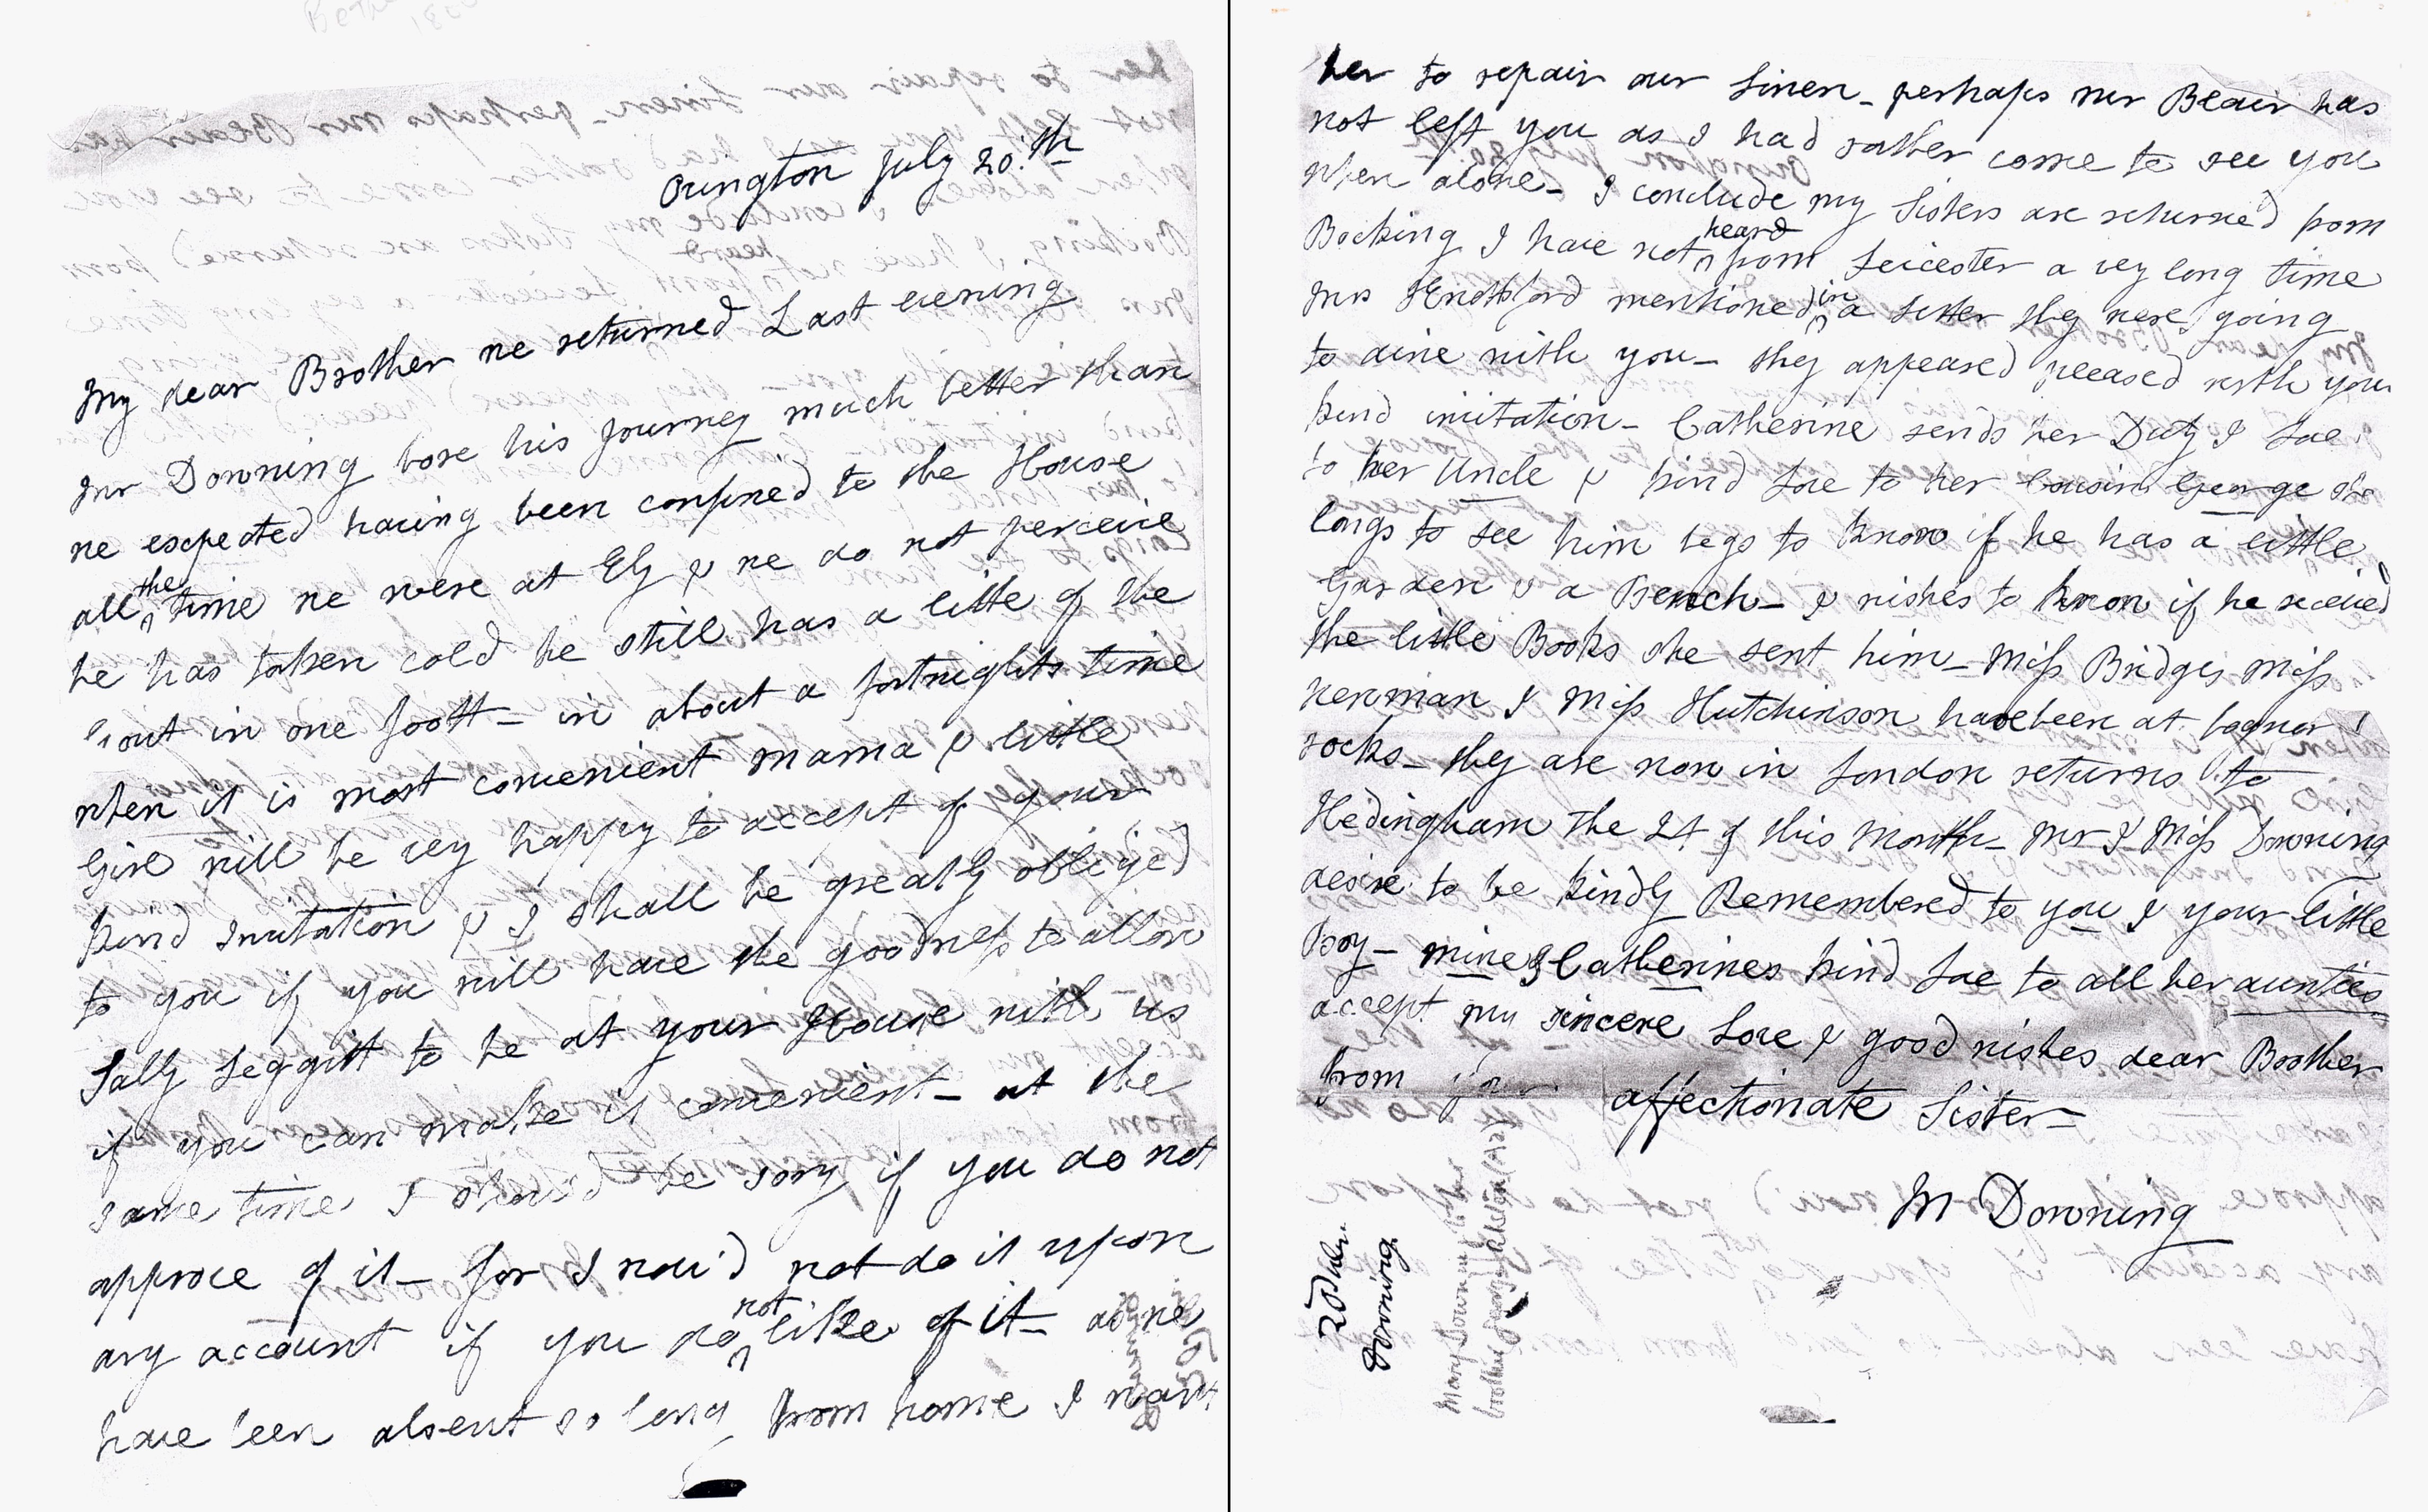 Ovington July 20.th
My dear Brother we returned Last evening
Mr Downing bore his Journey much better than
we expected having been confined to the House
all the time we were at Ely & we do not perceive
he has taken cold he still has a little of the
Gout in one foott - in about a fortnights time
when it is most convenient mama & little
Girl will be vey happy to accept of your
kind Invitation & I shall be greatly obliged
to you if you will have the goodness to allow
Sally Leggitt to be at your House with us
if you can make it convenient - at the
same time I should be sory if you do not
approve of it - for I wou'd not do it upon
any account if you do not like of it - as we
have been absent so long from home I want
her to repair our Linen - perhaps Mr Blair has
not left you as I had rather come to see you
when alone - I conclude my Sisters are returned from
Bocking I have not heard from Leicester a vey long time
Mrs mentioned in a Letter they were going
to dine with you - they appeared pleased with your
kind invitation - Catherine sends her Duty & Love
to her Uncle & kind Love to her Cousin George she
longs to see him begs to know if he has a little
Garden & a Bench - & wishes to know if he received
the little Books she sent him - Miss Bridges Miss
Newman & Miss Hutchinson have been at Bognor
rocks - they are now in London returns to
Hedingham the 24 of this Month - Mr & Miss Downing
desire to be kindly Remembered to you & your little
Boy - mine & Catherines kind Love to all her aunties
accept my sincere Love & good wishes dear Brother
from your affectionate Sister -
M Downing
Downing
Mary Downing to her
brother George